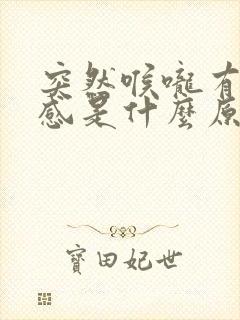 突然喉嚨有
感是什麼原
寶田妃世